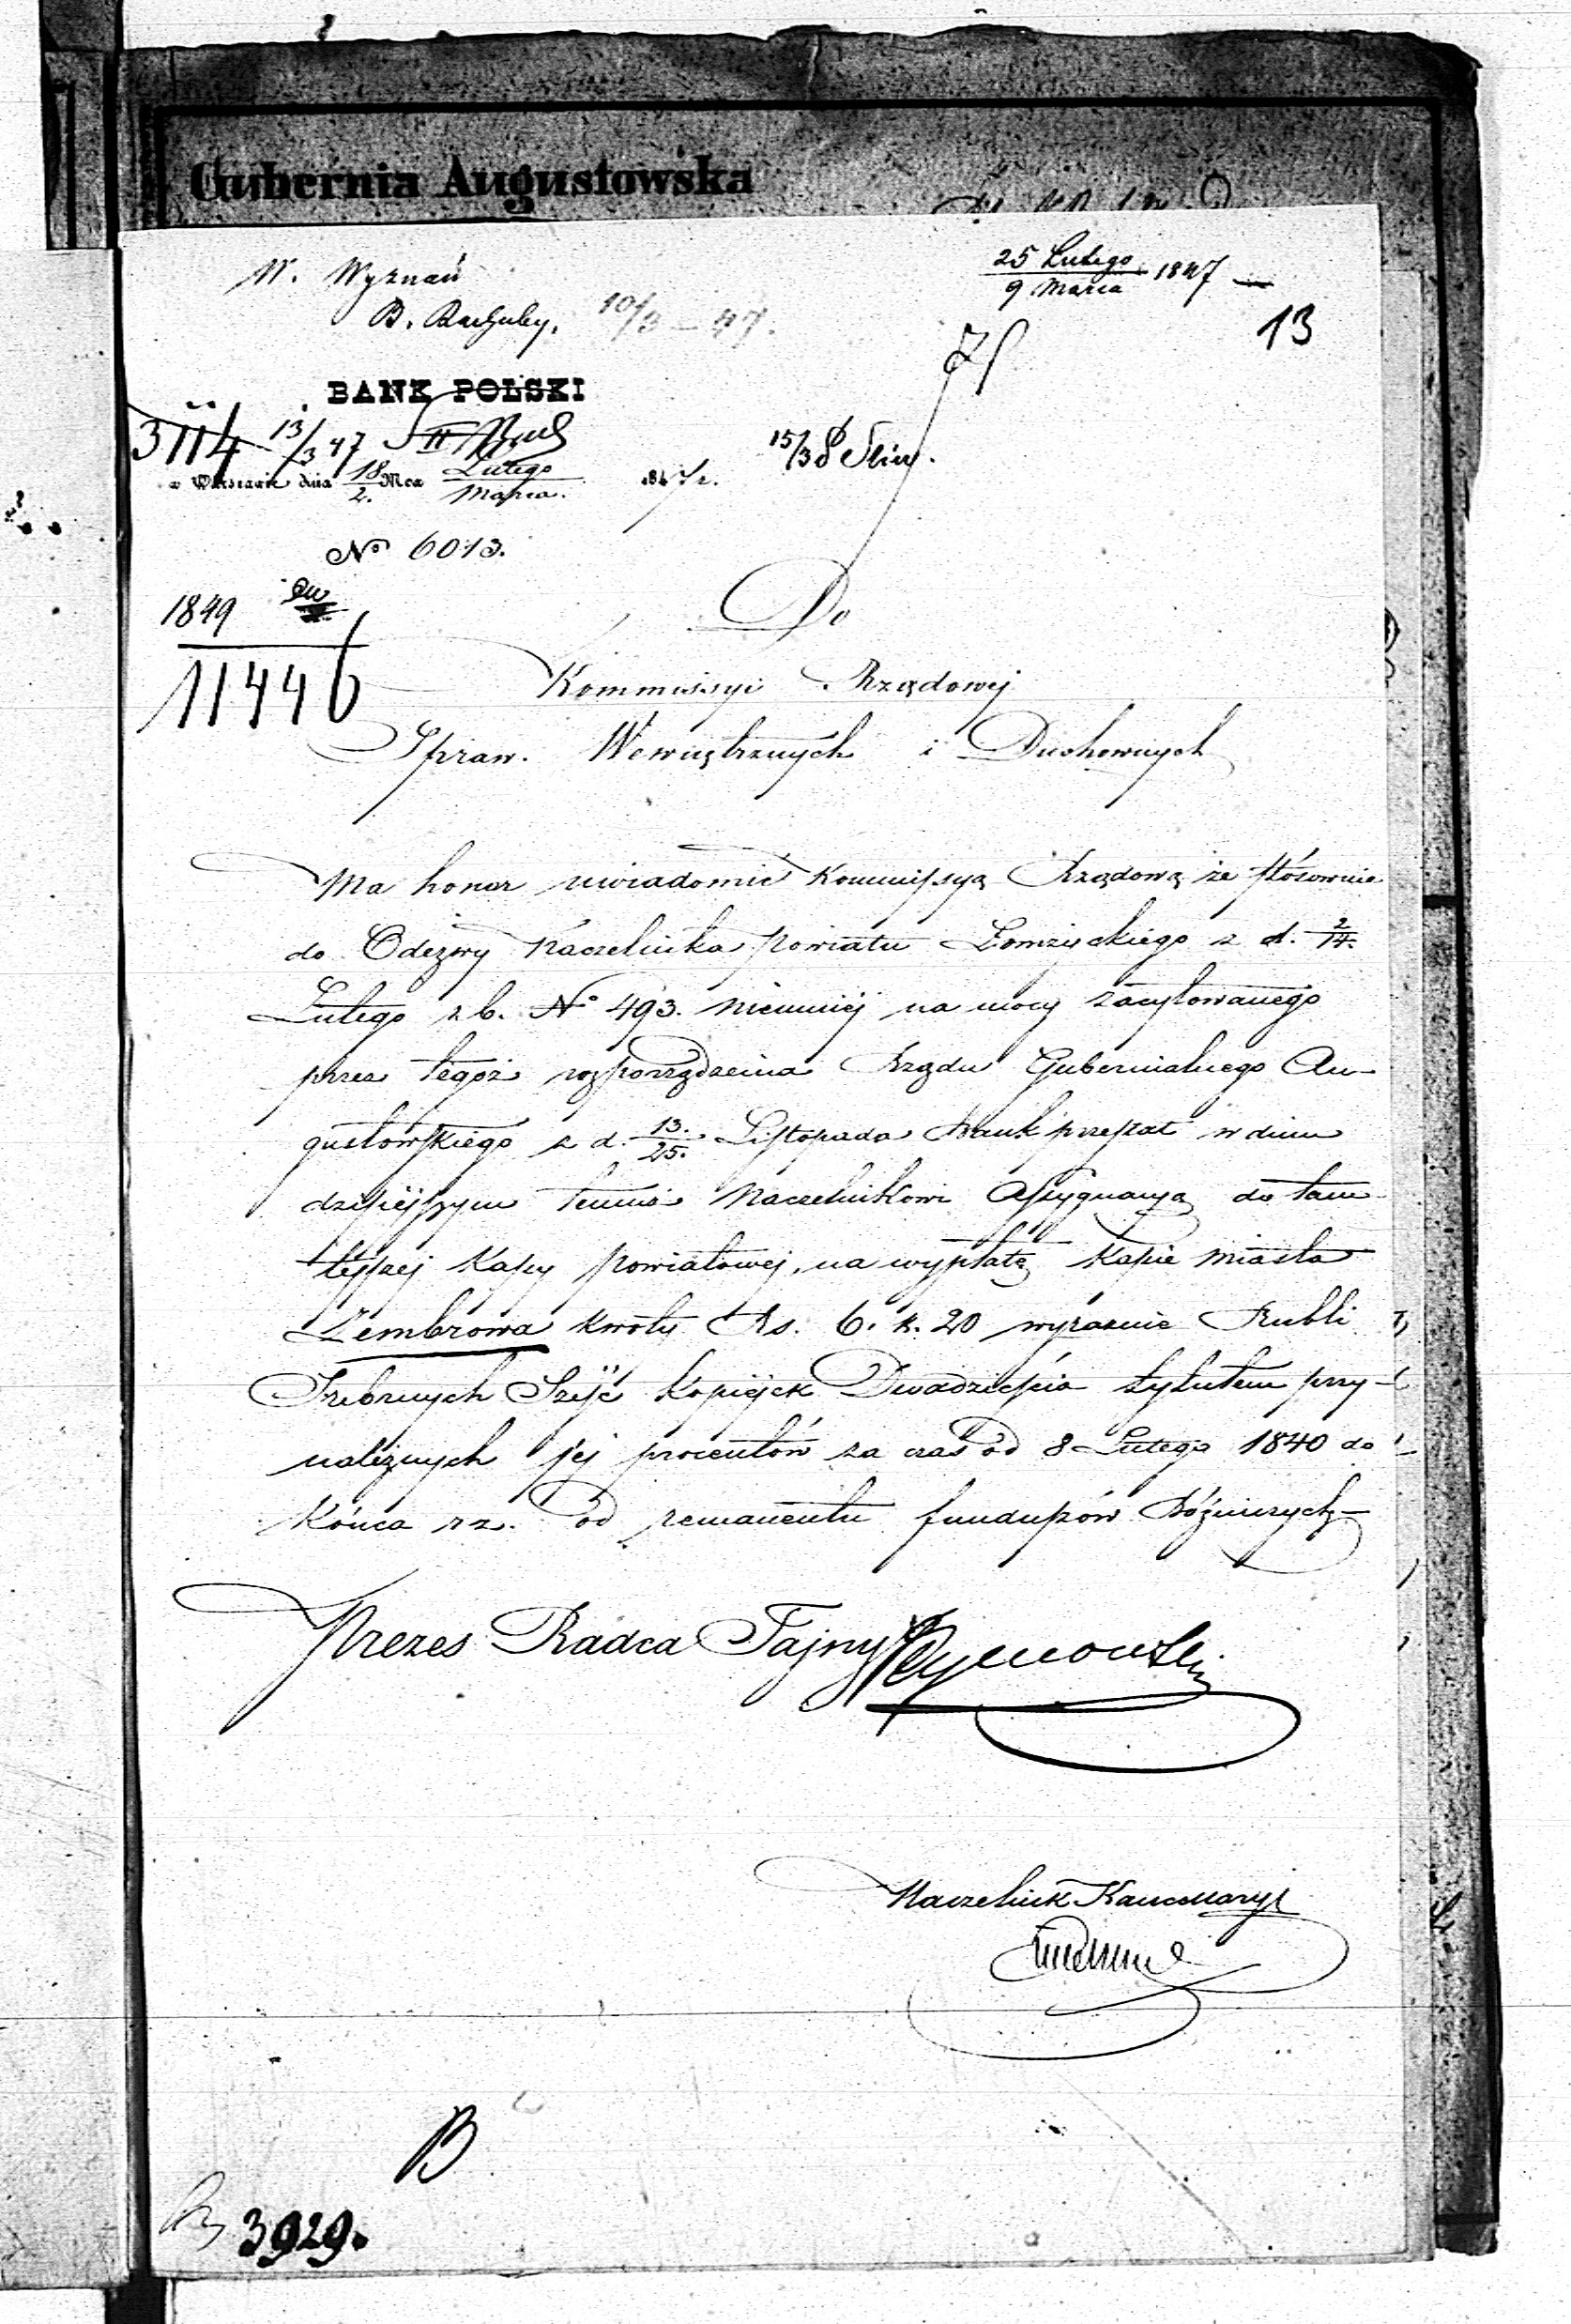 Gubernia Augustowska
W. Wyznań
B. Rachuby. 10/3 – 47.
25 Lutego
9 Marca 1847
13
BANK POLSKI
3114 13/3 47
w Warszawie dnia 18/2. Mca Lutego/Marca. 1847 r.
15/3
No 6013.
1849
11446
Do
Kommissyi Rządowej
Spraw. Wewnętrznych i Duchownych
Ma honor uwiadomić Kommissyą Rządową że stósownie
do Odezwy Naczelnika Powiatu Łomżyckiego z d. 2/14.
Lutego r b. No 493. niemniej na mocy zacytowanego
przez tegoż rozporządzenia Rządu Gubernialnego Au-
gustowskiego z d. 13./25. Listopada Bank przesłał w dniu
dzisiejszym temuż Naczelnikowi Assygnacyą do tam
tejszej Kassy Powiatowej, na wypłatę Kassie Miasta
Zembrowa kwoty Rs. 6. k. 20 wyraźnie Rubli
Srebrnych Sześć Kopiejek Dwadzieścia tytułem przy-
należnych jej procentów za czas od 8 Lutego 1840 do
Końca r z. od remanentu funduszów Bóżniczych
Prezes Radca Tajny
Naczelnik Kancellaryi
B
3929.